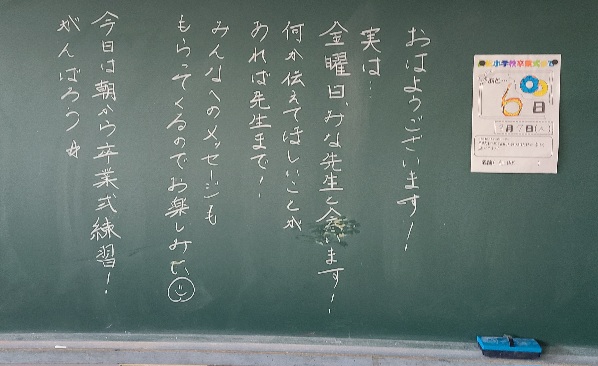 おはようございます!
実は…
金曜日、みな先生と会います!
何か伝えてほしいことが
あれば先生まで!
みんなへのメッセージも
もらってくるのでお楽しみに
今日は朝から卒業式練習!
がんばろう☆
小学校卒業式まで
あと…
6日